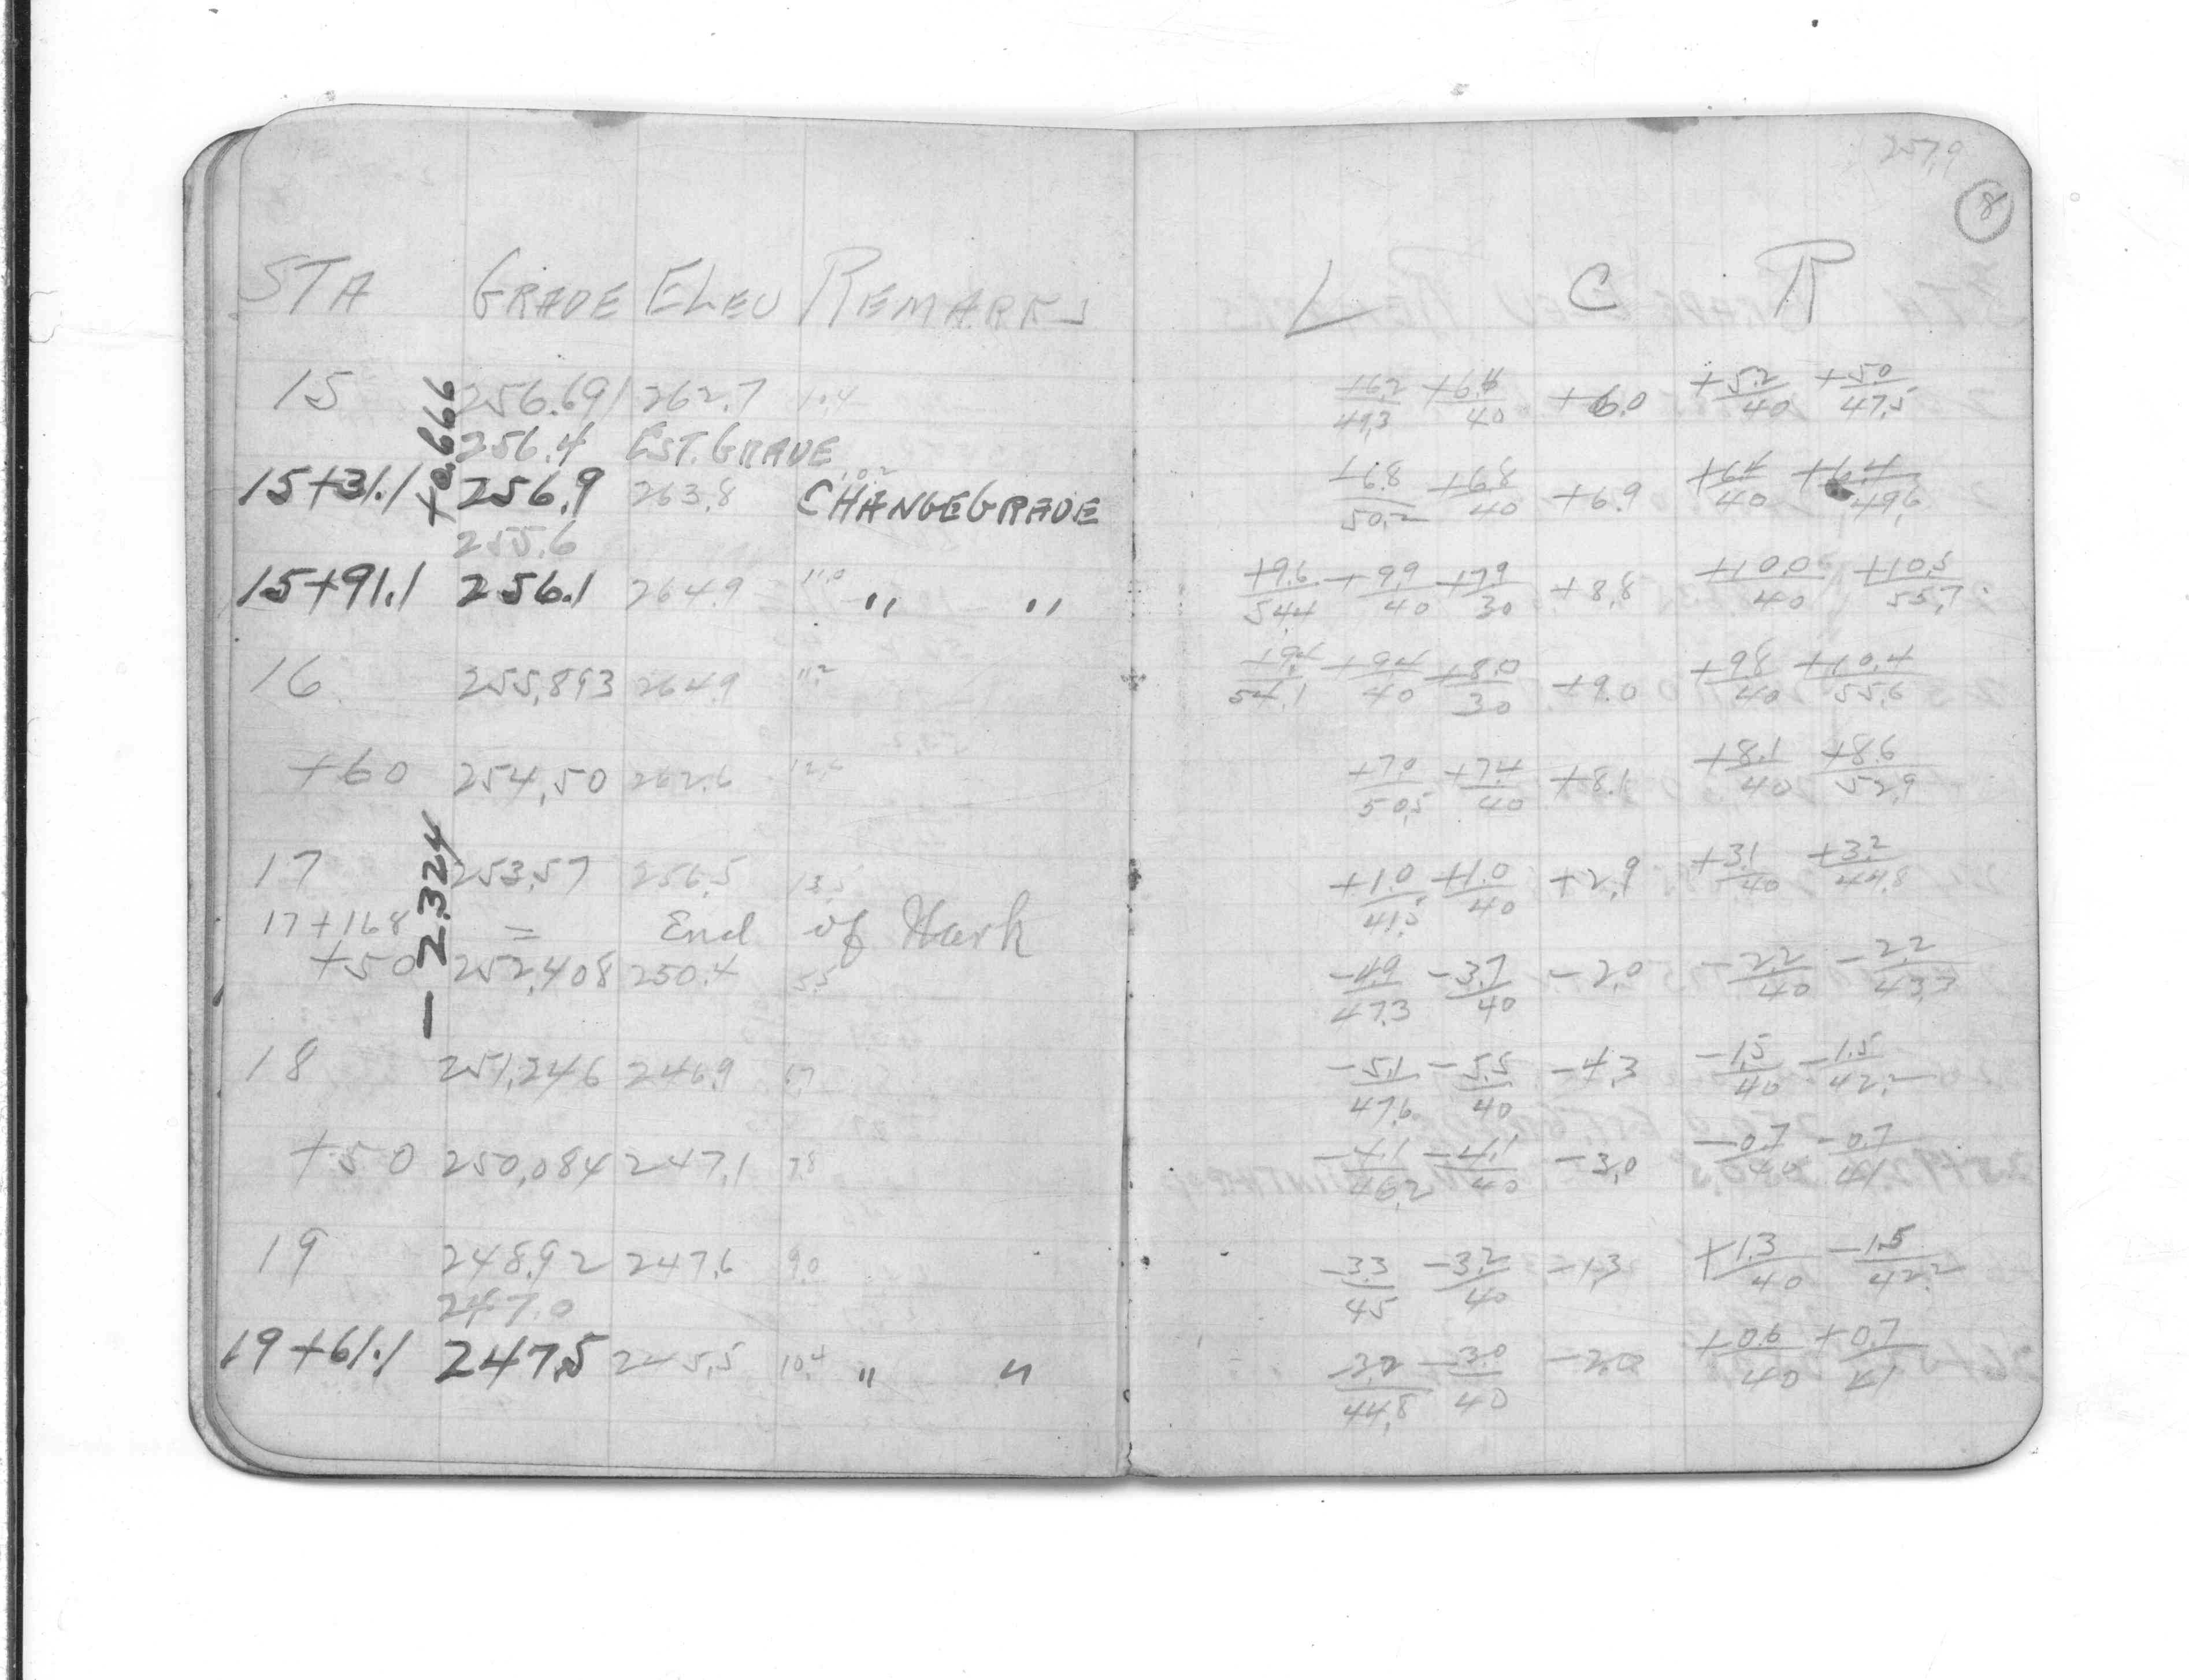 257.9
8
STA GRADE ELEV REMARKS L C R
15 256.691 262.7 10.4 +6.2/49.3 +6.4/40 +6.0 +5.2/40 +5.0/47.5
+0.666
256.4 EST. GRADE
15+31.1 256.9 263.8 10.2 CHANGE GRADE +6.8/50.2 +6.8/40 +6.9 +6.4/40 +6.4/49.6
255.6
15+91.1 256.1 264.9 11.0 " " +9.6/54.4 +9.9/40 +7.9/30 +8.8 +10.0/40 +10.5/55.7
16 255.893 264.9 11.2 +9.4/54.1 +9.4/40 +8.0/30 +9.0 +9.8/40 +10.4/55.6
+60 254.50 262.6 12.6 +7.0/50.5 +7.4/40 +8.1 +8.1/40 +8.6/52.9
-2.324
17 253.57 256.5 13.5 +1.0/41.5 +1.0/40 +2.9 +3.1/40 +3.2/44.8
17+16.8 = End of
+50 252.408 250.4 5.5 -4.9/47.3 -3.7/40 -2.0 -2.2/40 -2.2/43.3
18 251.246 246.9 6.7 -5.1/47.6 -5.5/40 -4.3 -1.5/40 -1.5/42.2
+50 250.084 247.1 7.8 -4.1/46.2 -4.1/40 -3.0 -0.7/40 -0.7/41
19 248.92 247.6 9.0 -3.3/45 -3.2/40 -1.3 +1.3/40 -1.5/42.2
247.0
19+61.1 247.5 245.5 10.4 " " -3.2/44.8 -3.0/40 -2.0 +0.6/40 +0.7/41